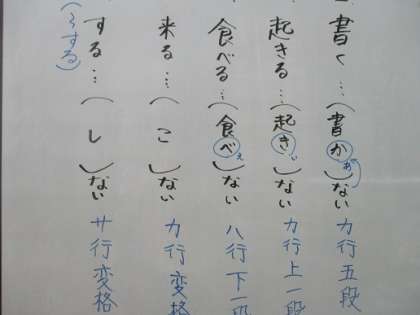 書く…(書か)ない カ行五段
あ
起きる…(起き)ない カ行上一段
い
食べる…(食べ)ない ハ行下一段
え
来る…(こ)ない カ行変格
する…(し)ない サ行変格
(〜する)